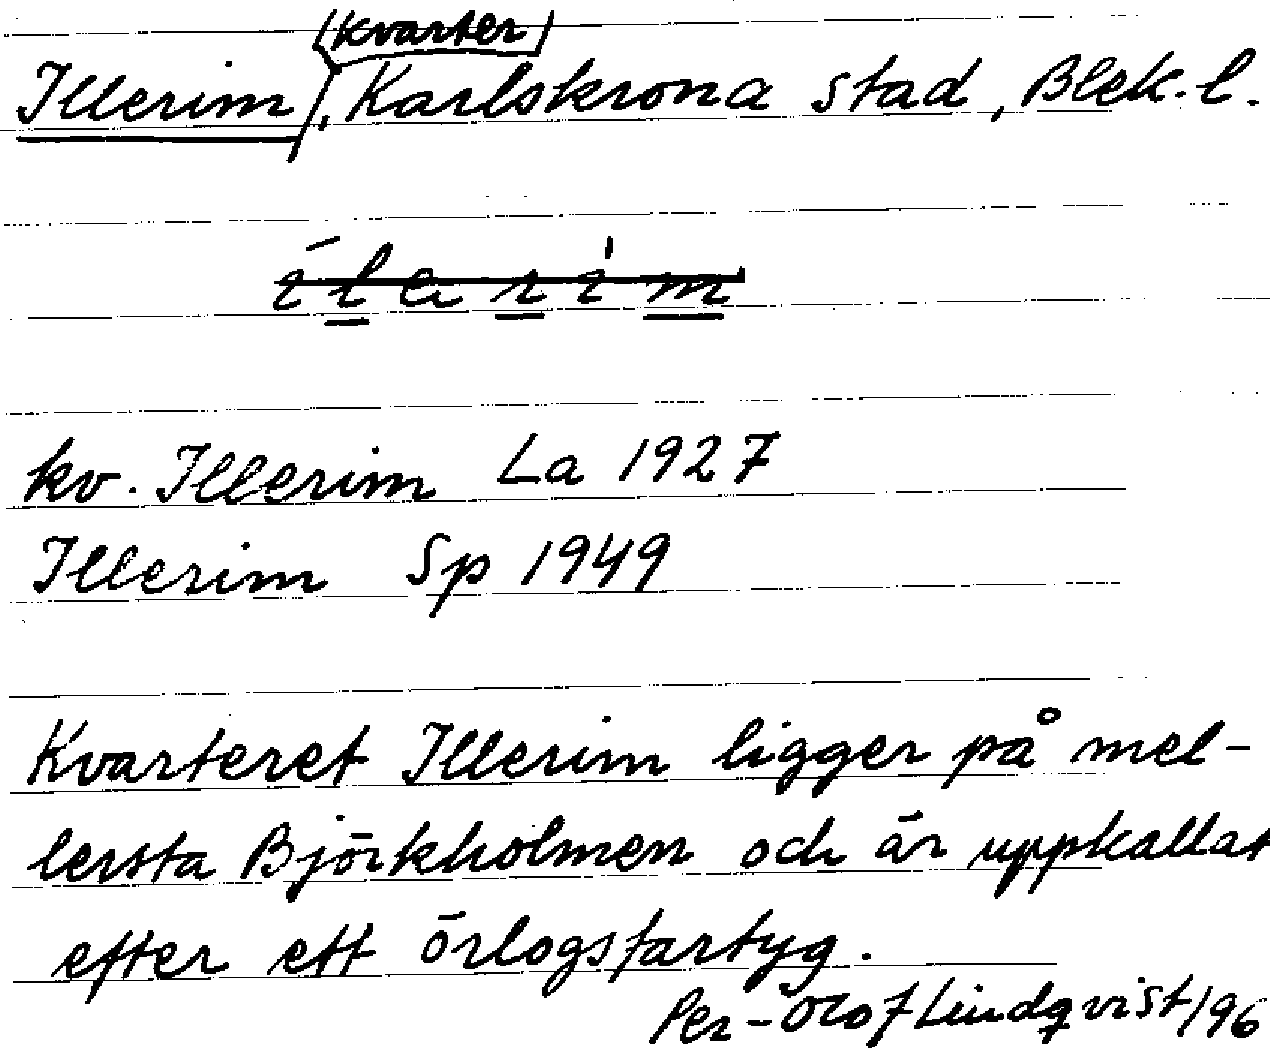 (kvarter)
Illerim, Karlskrona stad, Blek. l.
kv. Illerim La 1927
Illerim Sp 1949
Kvarteret Illerim ligger på mel-
lersta Björkholmen och är uppkallat
efter ett örlogsfartyg.
Per-Olof Lindqvist/96